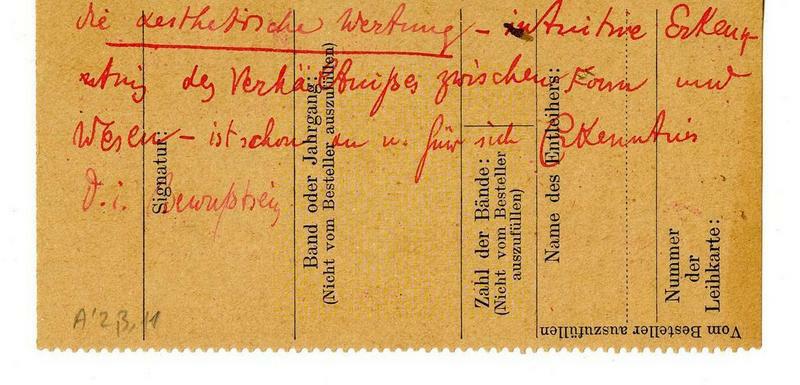 die aesthetische Wertung – intuitive Erken-
ntnis des Verhältnißes zwischen Form und
Wesen – ist schon an u. für sich Erkenntnis
d. i. Bewußtsein
A'2,3,11
Signatur:
Band oder Jahrgang:
(Nicht vom Besteller auszufüllen)
Zahl der Bände:
(Nicht vom Besteller
auszufüllen)
Name des Entleihers:
Nummer
der
Leihkarte:
Vom Besteller auszufüllen